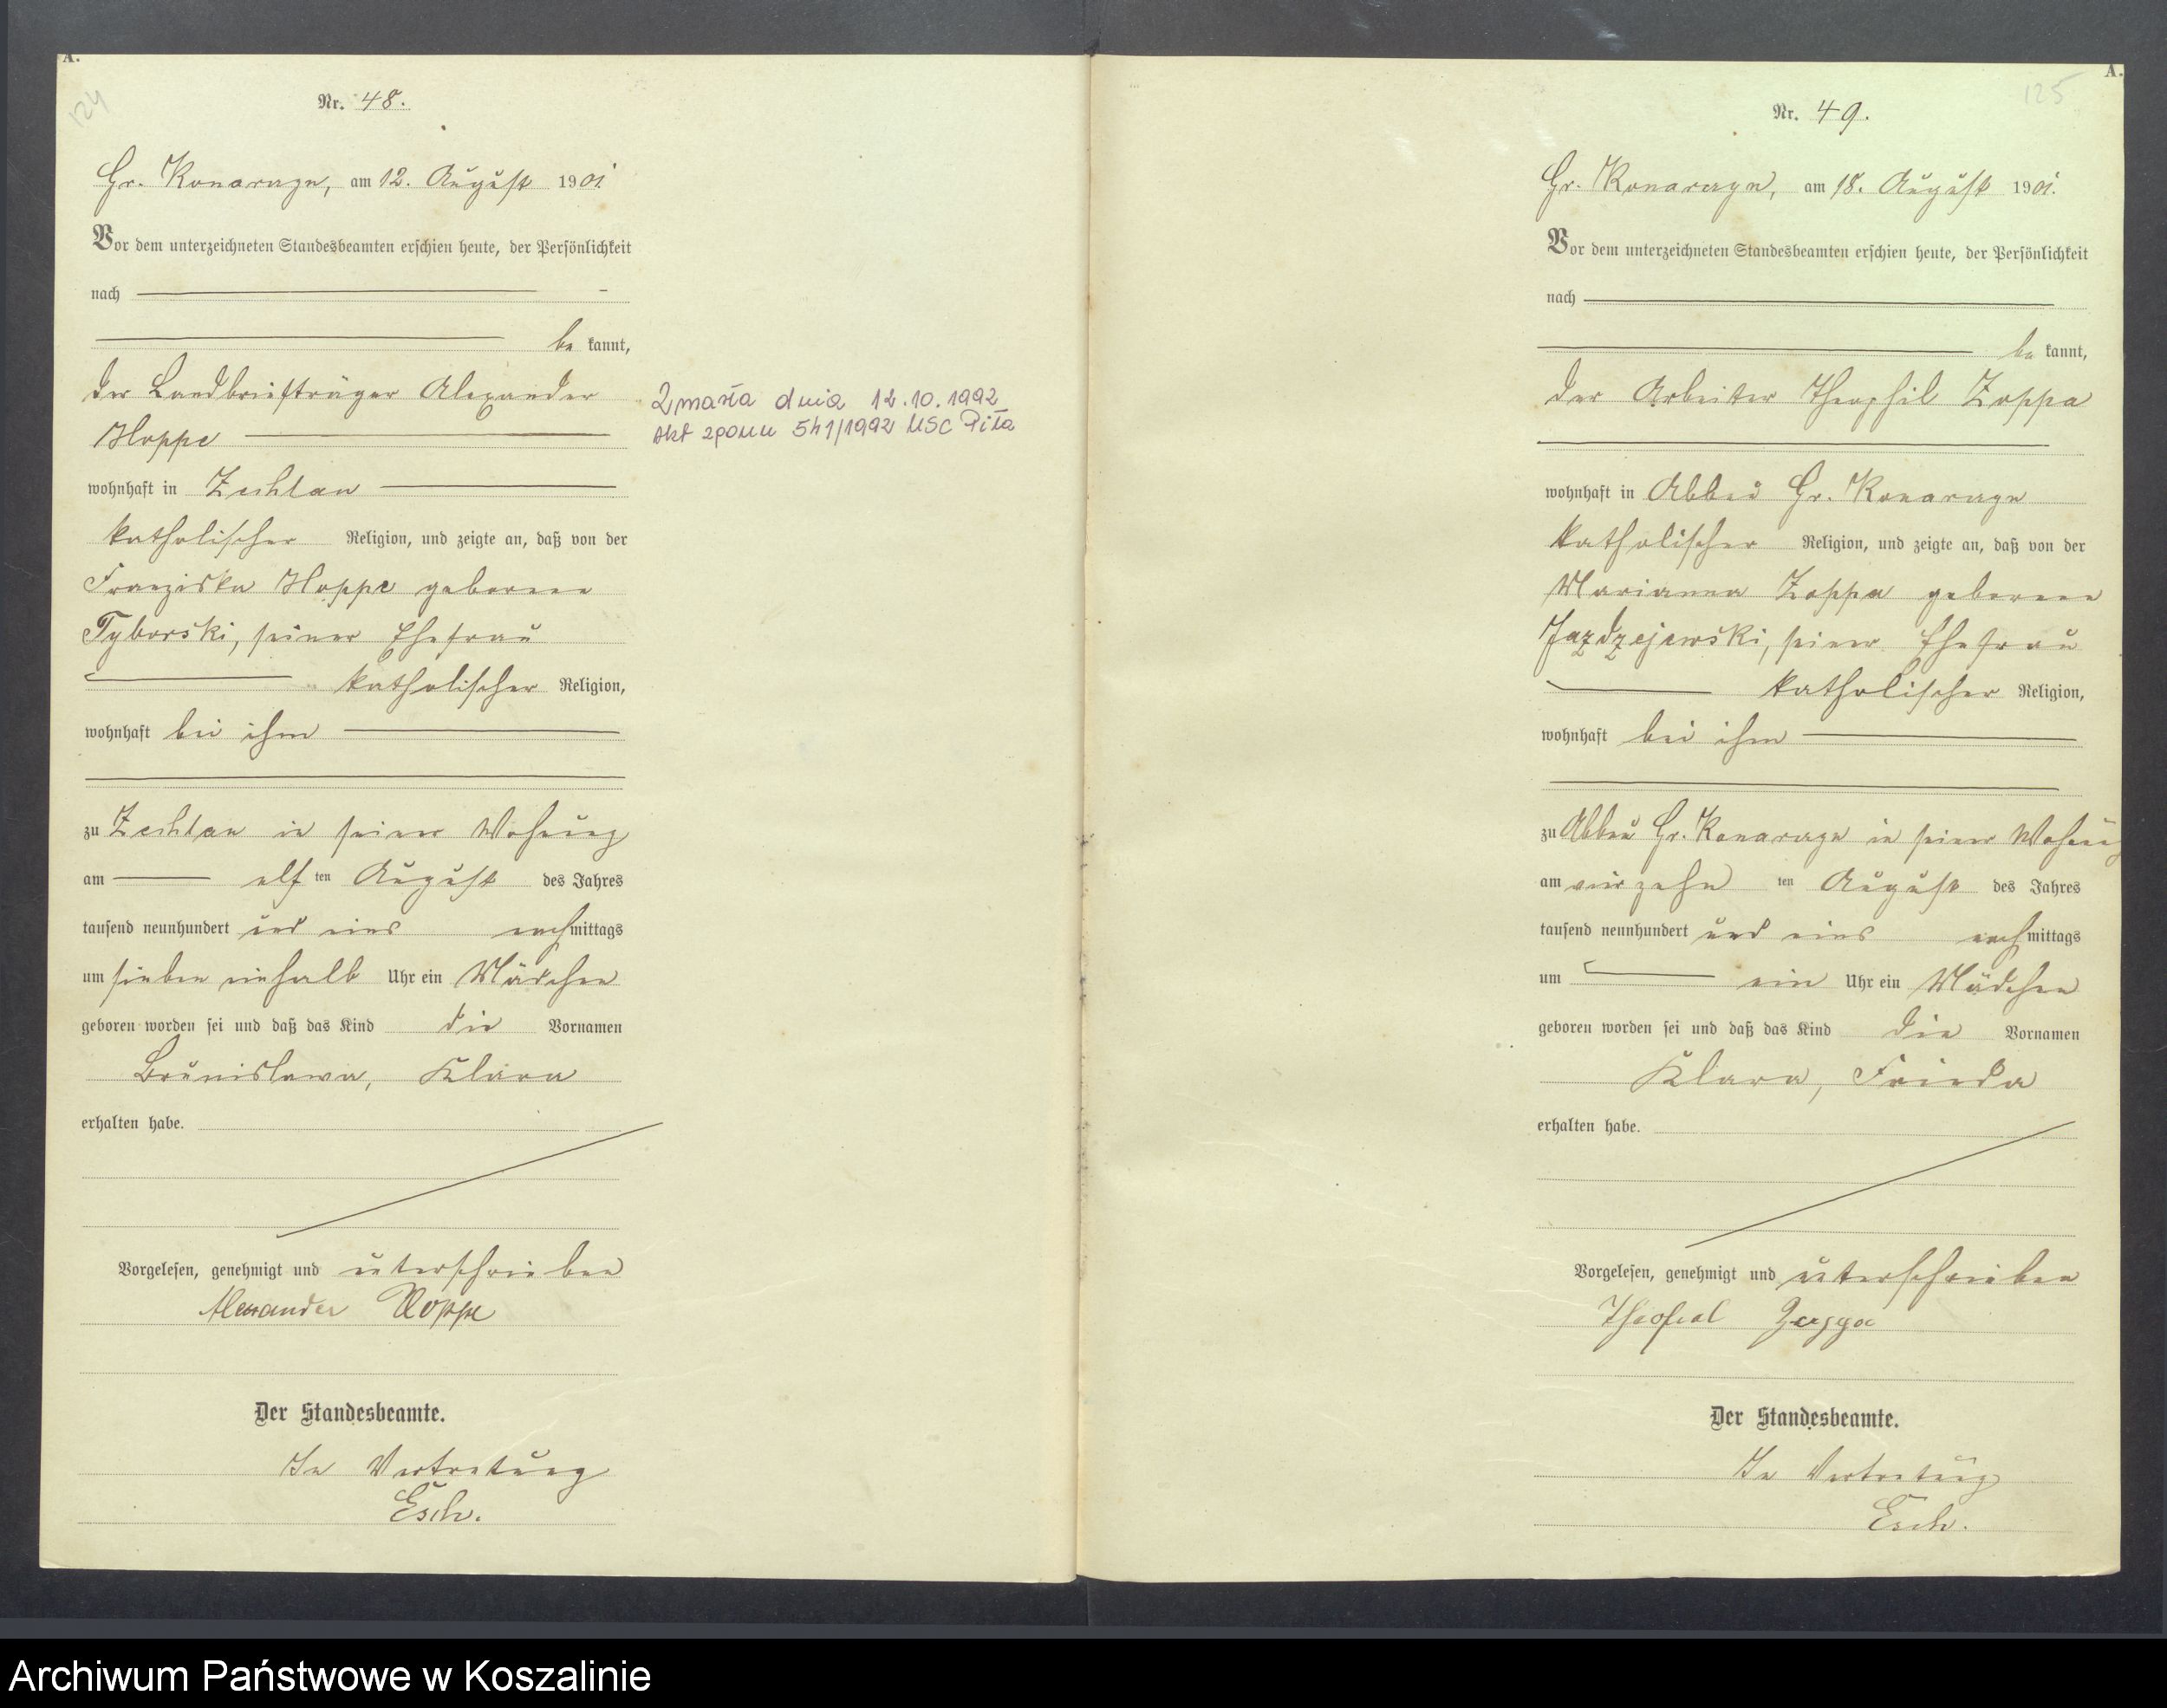 A.
124
Nr. 48.
Gr. Konarzyn, am 12. August 1901.
Vor dem unterzeichneten Standesbeamten erschien heute, der Persönlichkeit
nach
be kannt,
der Landbriefträger Alexander
Hoppe
wohnhaft in Zechlau
katholischer Religion, und zeigte an, daß von der
Franziska Hoppe geborene
Tyborski, seiner Ehefrau
katholischer Religion,
wohnhaft bei ihm
zu Zechlau in seiner Wohnung
am elf ten August des Jahres
tausend neunhundert und eins nachmittags
um sieben einhalb Uhr ein Mädchen
geboren worden sei und daß das Kind die Vornamen
Bronislawa, Klara
erhalten habe.
Vorgelesen, genehmigt und unterschrieben
Alexander Hoppe
Der Standesbeamte.
In Vertretung
Esch.
Zmarła dnia 12.10.1992
Akt zgonu 541/1992 USC Piła
A.
125
Nr. 49.
Gr. Konarzyn, am 18. August 1901.
Vor dem unterzeichneten Standesbeamten erschien heute, der Persönlichkeit
nach
be kannt,
der Arbeiter Theophil Zoppa
wohnhaft in Abbau Gr. Konarzyn
katholischer Religion, und zeigte an, daß von der
Marianna Zoppa geborene
Jazdzejewski, seiner Ehefrau
katholischer Religion,
wohnhaft bei ihm
zu Abbau Gr. Konarzyn in seiner Wohnung
am vierzehn ten August des Jahres
tausend neunhundert und eins nachmittags
um ein Uhr ein Mädchen
geboren worden sei und daß das Kind die Vornamen
Klara, Frieda
erhalten habe.
Vorgelesen, genehmigt und unterschrieben
Der Standesbeamte.
In Vertretung
Esch.
Archiwum Państwowe w Koszalinie